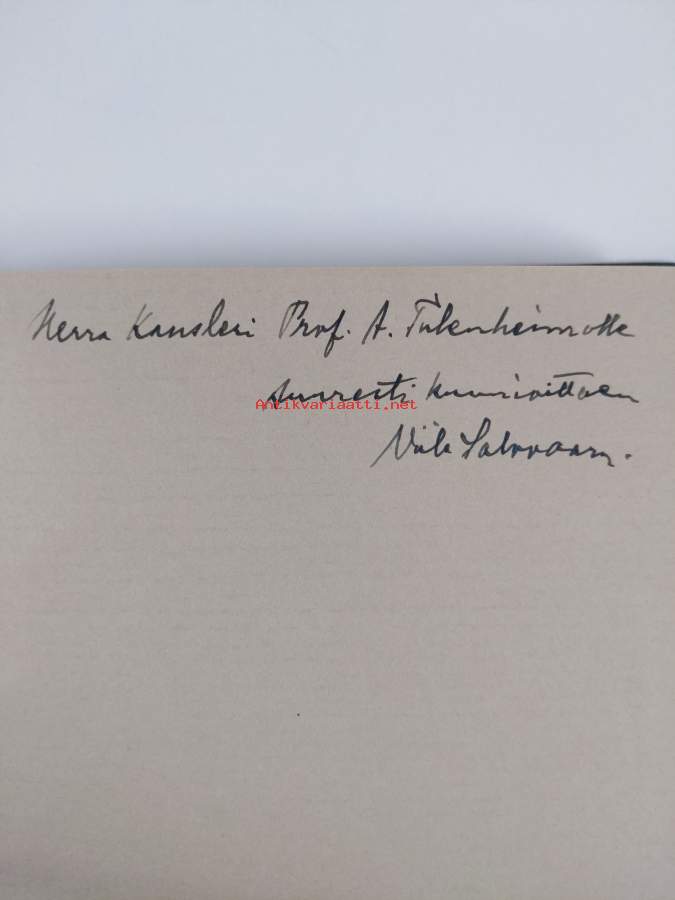 Herra Kansleri Prof. A. Tulenheimolle
suuresti kunnioittaen
Antikvariaatti.net
Salovaara.